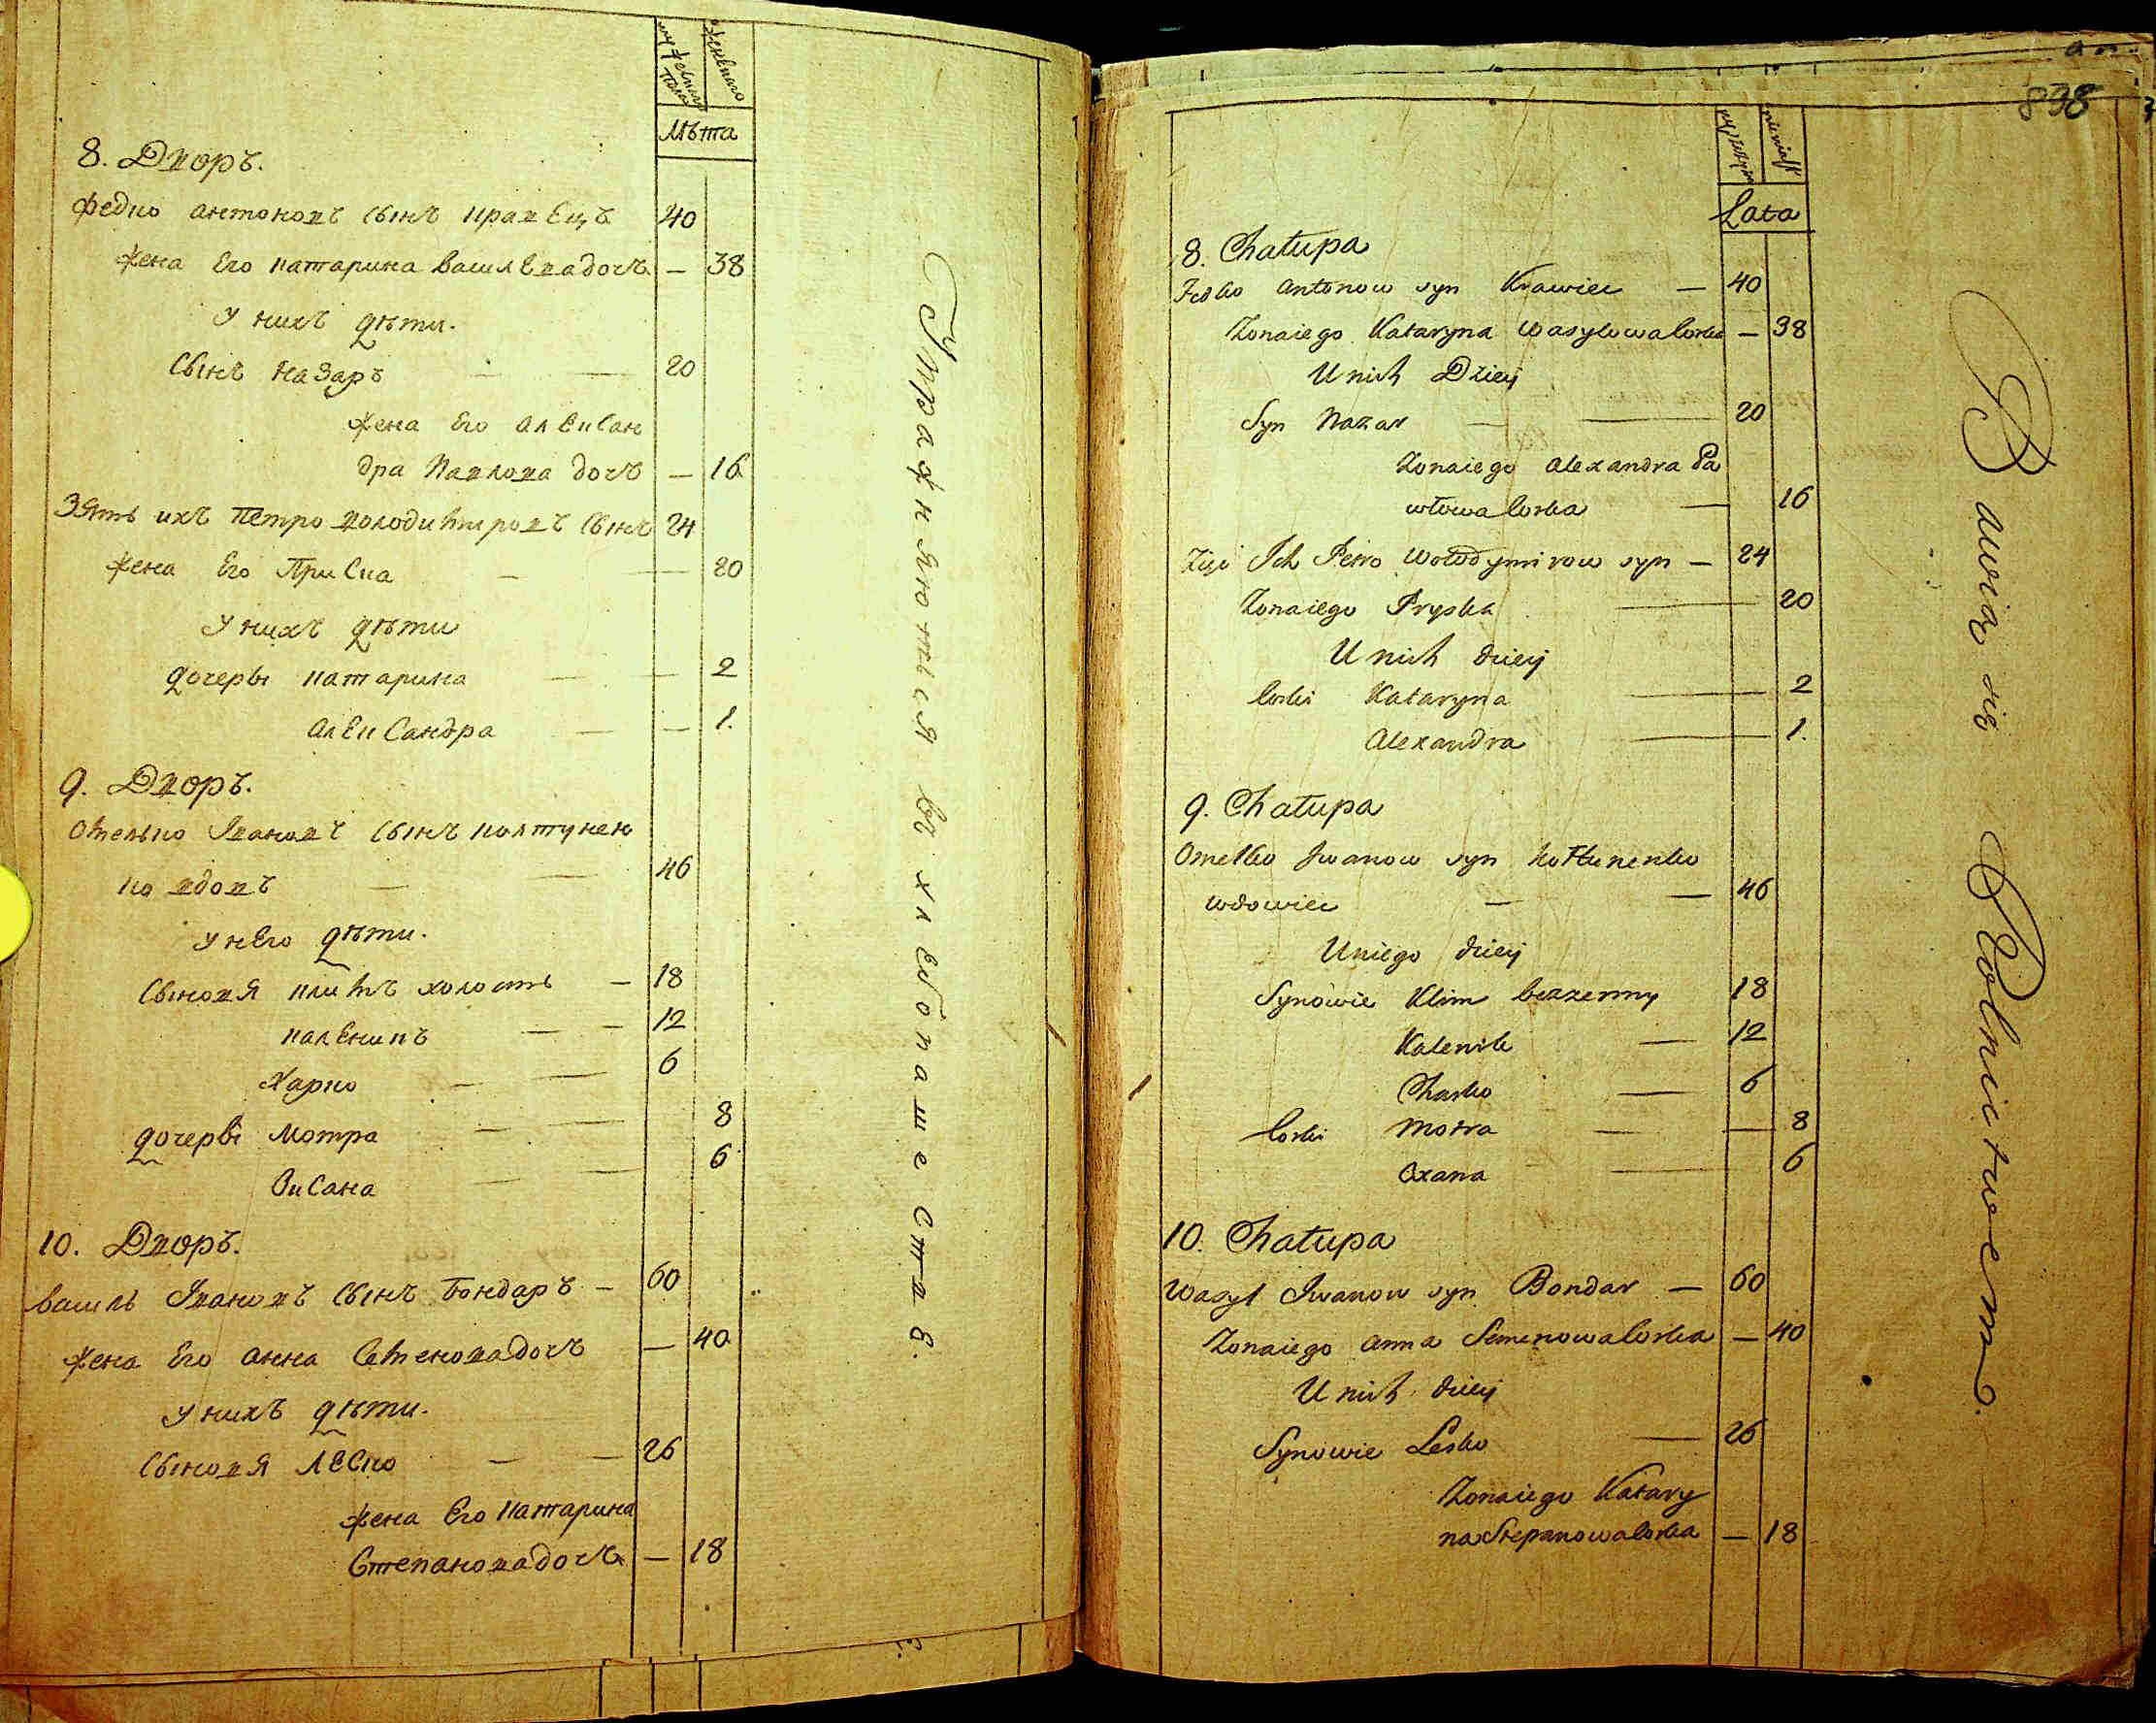 мужеска пола
женскаго
Лѣта
8. Дворъ.
Федко Антоновъ сынъ Кравецъ 40
жена Его Катарина Васильева дочь — 38
У нихъ дѣти.
Сынъ Назаръ — — 20
жена Его Алексан
дра Павлова дочь — 16
Зять ихъ Петро Володимировъ сынъ 24
жена Его Приска — — 20
У нихъ дѣти
дочеры Катарина — — 2
Александра — — 1.
9. Дворъ.
Омелько Івановъ сынъ Колтунен
ко вдовъ — — 46
У нЕго дѣти.
Сыновя Климъ холостъ — 18
Каленикъ — — 12
Харко — — 6
дочеры Мотра — — 8
Оксана — — 6
10. Дворъ.
Василь Івановъ сынъ Бондаръ — 60
жена Его Анна Семенова дочь — 40
У нихъ дѣти.
Сыновя Леско — — 26
жена Его Катарина
Степанова дочь — 18
Упражняються въ хлебопашестве.
838
Lata
8. Chałupa
Fedko Antonow syn Krawiec — 40
Żona iego Kataryna Wasylowa Corka — 38
U nich Dzieij
Syn Nazar — — 20
Żona iego Alexandra Pa
włowa Corka — 16
Zięć Ich Petro Wołodymirow syn — 24
Żona iego Pryska — 20
U nich dzieij
Corki Kataryna — 2
Alexandra — 1.
9. Chałupa
Omelko Iwanow syn Kołtunenko
wdowiec — — 46
U niego dzieij
Synowie Klim bezzenny 18
Kalenik — 12
Charko — 6
Corki Motra — — 8
Oxana — 6
10. Chałupa
Wasyl Iwanow syn Bondar — 60
Żona iego Anna Semenowa Corka — 40
U nich dzieij
Synowie Lesko — 26
Żona iego Katary
na Stepanowa Corka — 18
Bawią się Rolnictwem.